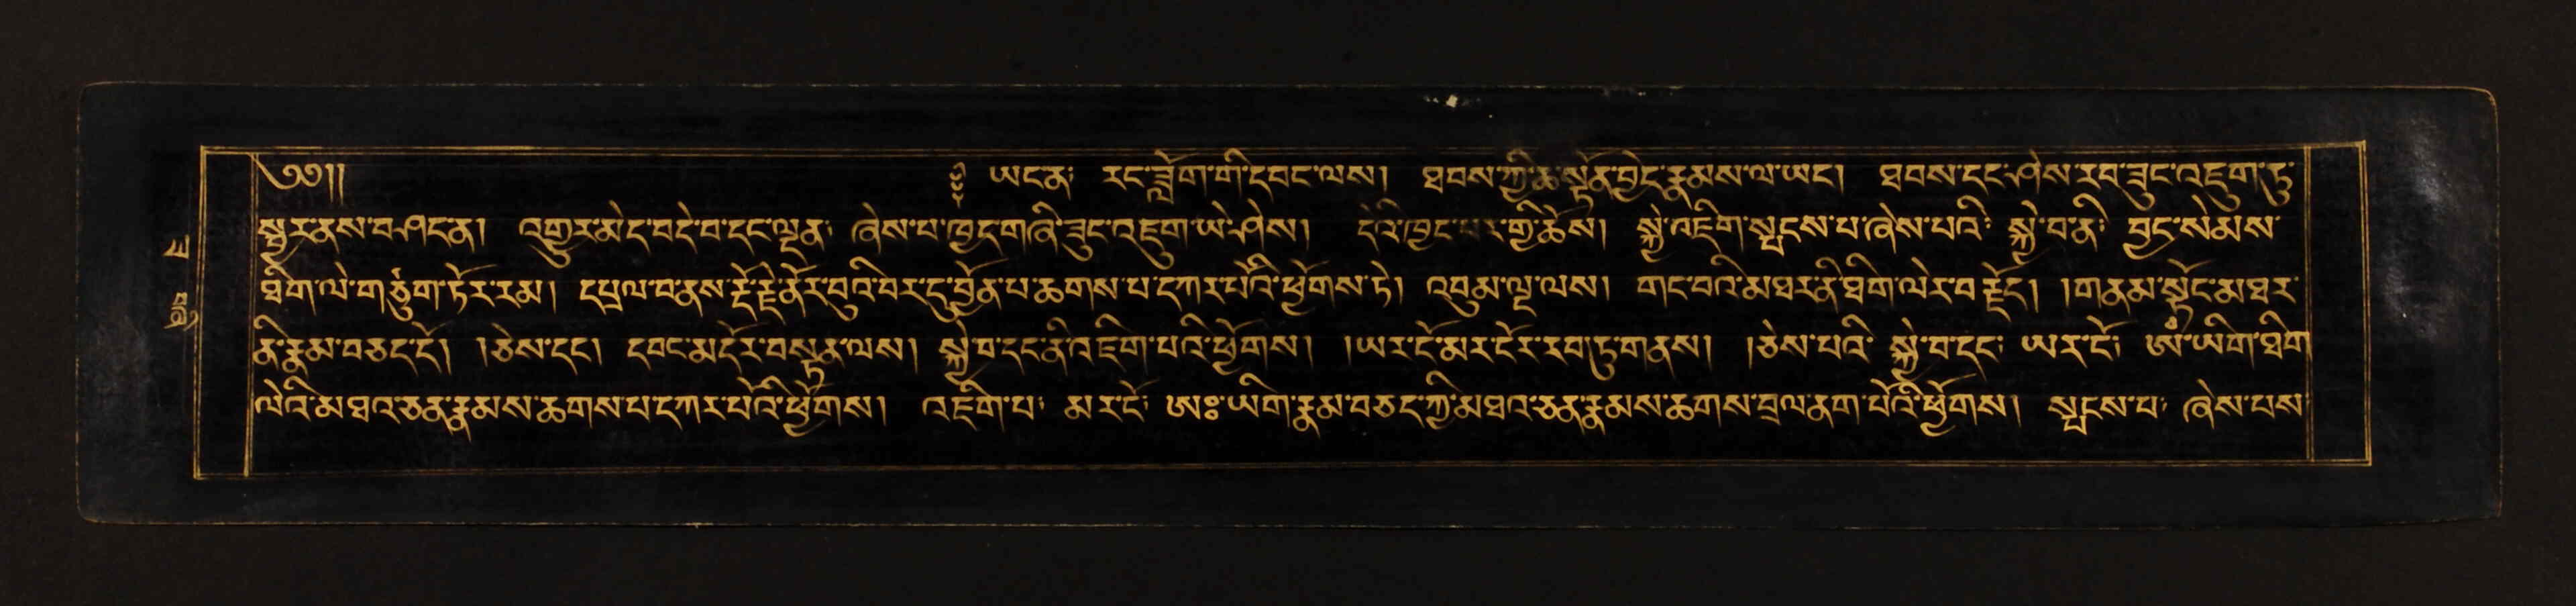 ༄༅།། ༔ ཡང་ན༔ རང་ཟློག་གི་དབང་ལས། ཐབས་ཀྱི་ཆ་སྟོན་བྱེད་རྣམས་ལ་ཡང། ཐབས་དང་ཤེས་རབ་ཟུང་འཇུག་ཏུ་
སྦྱར་ནས་བཤད་ན། འགྱུར་མེད་བདེ་བ་དང་ལྡན༔ ཞེས་པ་ཁྱད་གཞི་ཟུང་འཇུག་ཡེ་ཤེས། དེའི་ཁྱད་པར་གྱི་ཆོས། སྐྱེ་འཇིག་སྤངས་པ་ཞེས་པའི༔ སྐྱེ་བ་ནི༔ བྱང་སེམས་
ཐིག་ལེ་གཙུག་ཏོར་རམ། དཔྲལ་བ་ནས་རྡོ་རྗེ་ནོར་བུའི་བར་དུ་བྱོན་པ་ཆགས་པ་དཀར་པོའི་ཕྱོགས་ཏེ། འབུམ་ལྔ་ལས། གང་བའི་མཐར་ནི་ཐིག་ལེར་བརྗོད། །གནམ་སྟོང་མཐར་
ནི་རྣམ་བཅད་དོ། །ཅེས་དང། དབང་མདོར་བསྟན་ལས། སྐྱེ་བ་དང་ནི་འཇིག་པའི་ཕྱོགས། །ཡར་ངོ་མར་ངོར་རབ་ཏུ་གནས། །ཅེས་པའི་ སྐྱེ་བ་དང༔ ཡར་ངོ༔ ཨཾ་ཡིག་ཐིག
ལེའི་མཐའ་ཅན་རྣམས་ཆགས་པ་དཀར་པོའི་ཕྱོགས། འཇིག་པ༔ མར་ངོ༔ ཨཿ་ཡིག་རྣམ་བཅད་ཀྱི་མཐའ་ཅན་རྣམས་ཆགས་བྲལ་ནག་པོའི་ཕྱོགས། སྤངས་པ༔ ཞེས་པས